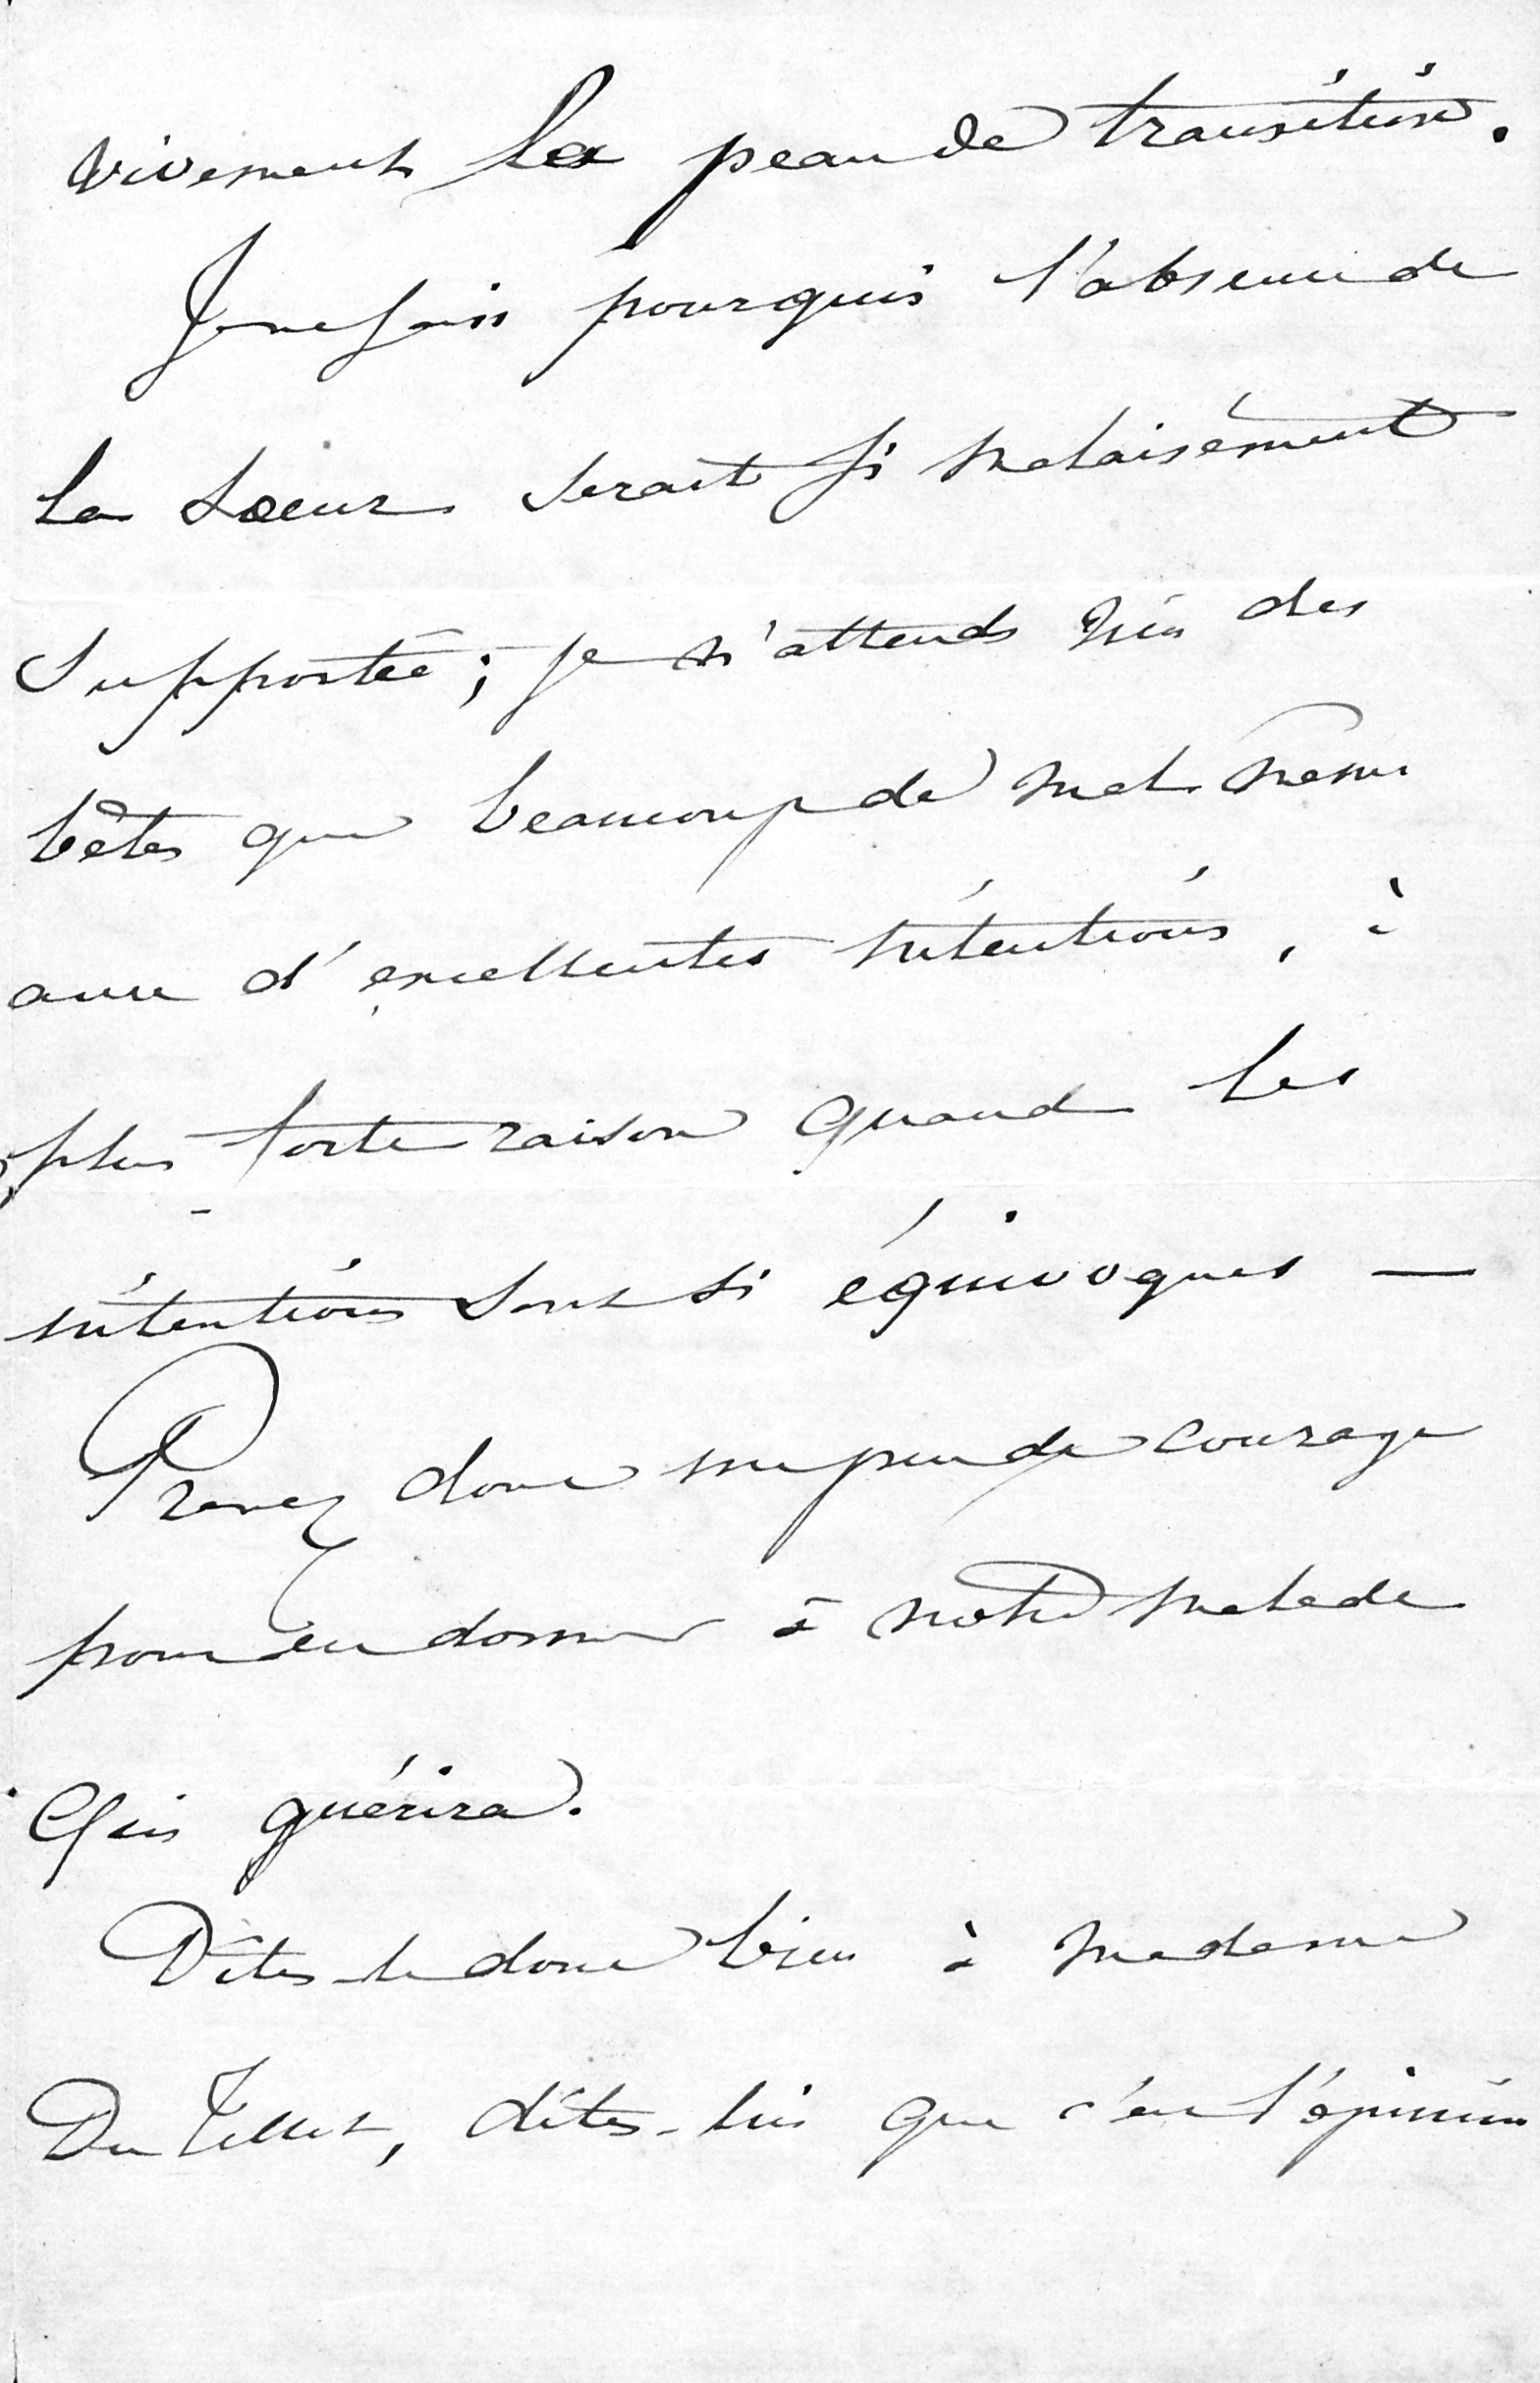 vivement la peau de transition.
Je ne sais pourquoi l'absence de
la Soeur serait si malaisément
supportée ; je n'attends rien des
bêtes que beaucoup de mal même
avec d'excellentes intentions, à
plus forte raison quand les
intentions sont si équivoques —
Prenez donc un peu de courage
pour en donner à notre malade
qui guérira.
Dites-le donc bien à madame
Du Tillet, dites-lui que c'est l'opinion